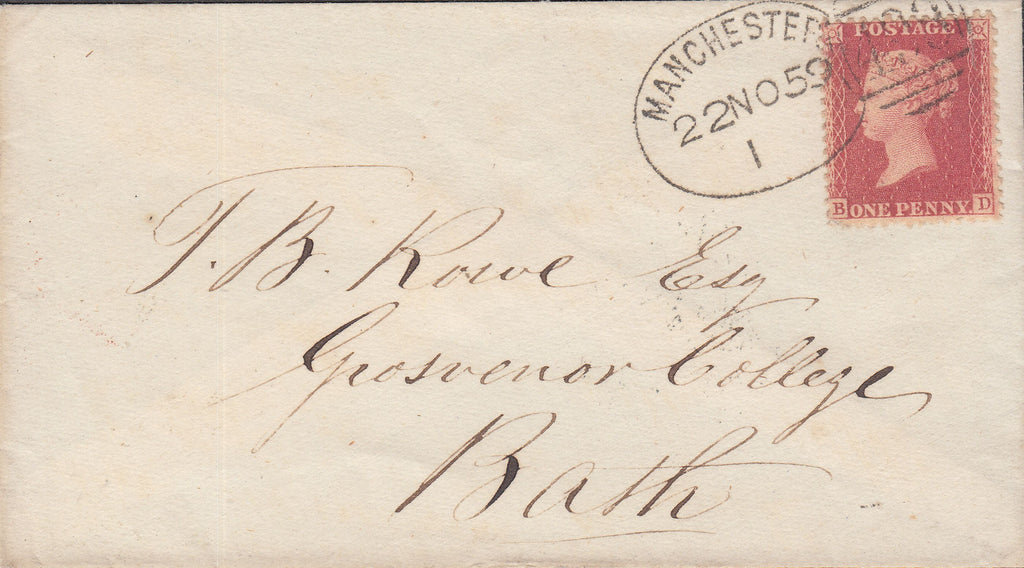 MANCHESTER
22 NO 59
1
POSTAGE
B ONE PENNY D
T. B. Rowe Esq
Grosvenor College
Bath